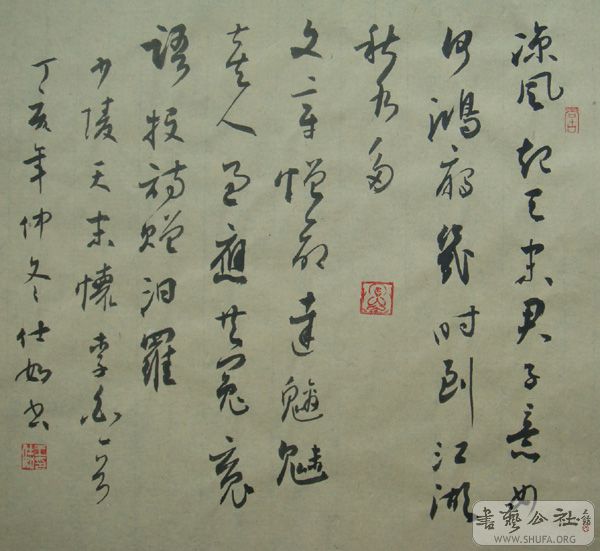 涼風起天末君子意如
何鴻雁幾时到江湖
秋水多
文章憎命達魑魅
喜人过應共冤魂
語投詩贈汨羅
少陵天末懷李白一首
丁亥年仲冬仕如书
書藝公社
WWW.SHUFA.ORG